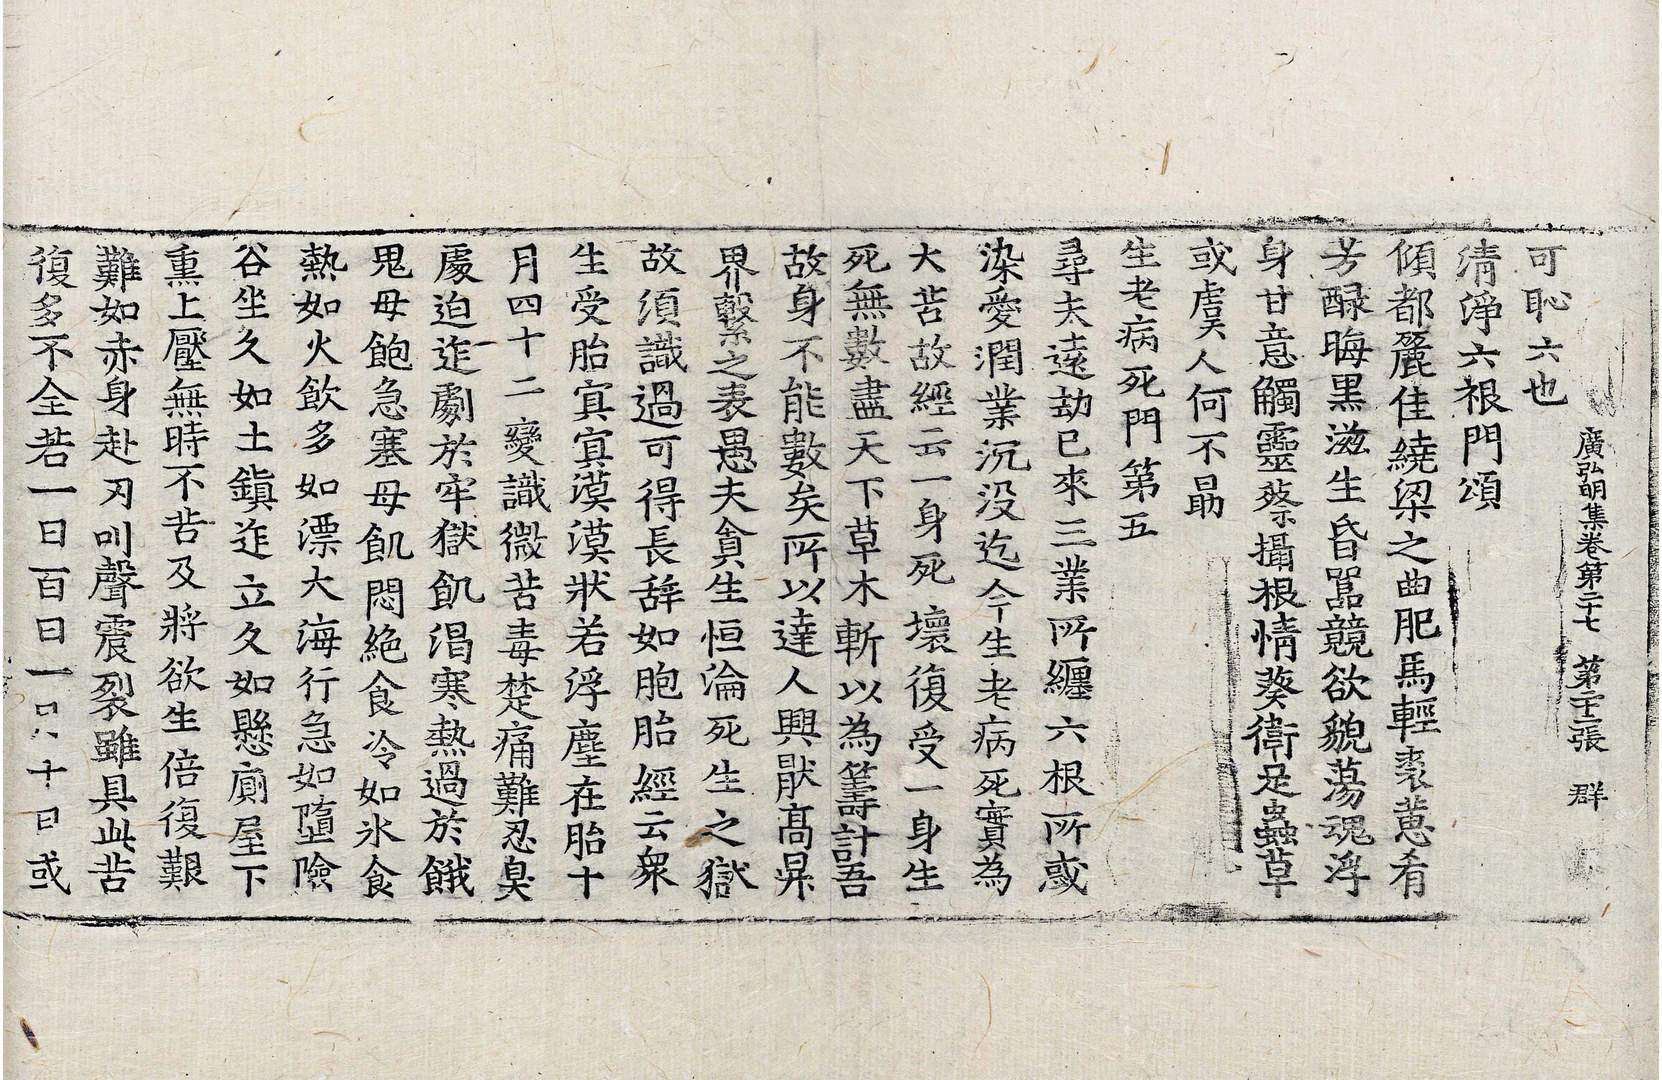 廣弘明集卷第二十七 第二十張 群
可恥六也
清淨六根門頌
傾都麗佳繞梁之曲肥馬輕裘蔥肴
芳醁晦黒滋生昏嚚競欲貌蕩魂浮
身甘意觸靈蔡攝根情葵衛足蟲草
或虞人何不勗
生老病死門第五
尋夫遠劫已來三業所纏六根所惑
染愛潤業沉没迄今生老病死實為
大苦故經云一身死壞復受一身生
死無數盡天下草木斬以為籌計吾
故身不能數矣所以達人興猒高昇
界繫之表愚夫貪生恒淪死生之獄
故須識過可得長辝如胞胎經云衆
生受胎㝠㝠漠漠狀若浮塵在胎十
月四十二變識微苦毒楚痛難忍臭
處迫迮劇於牢獄飢渴寒熱過於餓
鬼母飽急塞母飢悶絶食冷如氷食
熱如火飲多如漂大海行急如墮險
谷坐久如土鎮迮立久如懸廁屋下
熏上壓無時不苦及將欲生倍復艱
難如赤身赴刃叫聲震裂雖具此苦
復多不全若一日百日一 十日或